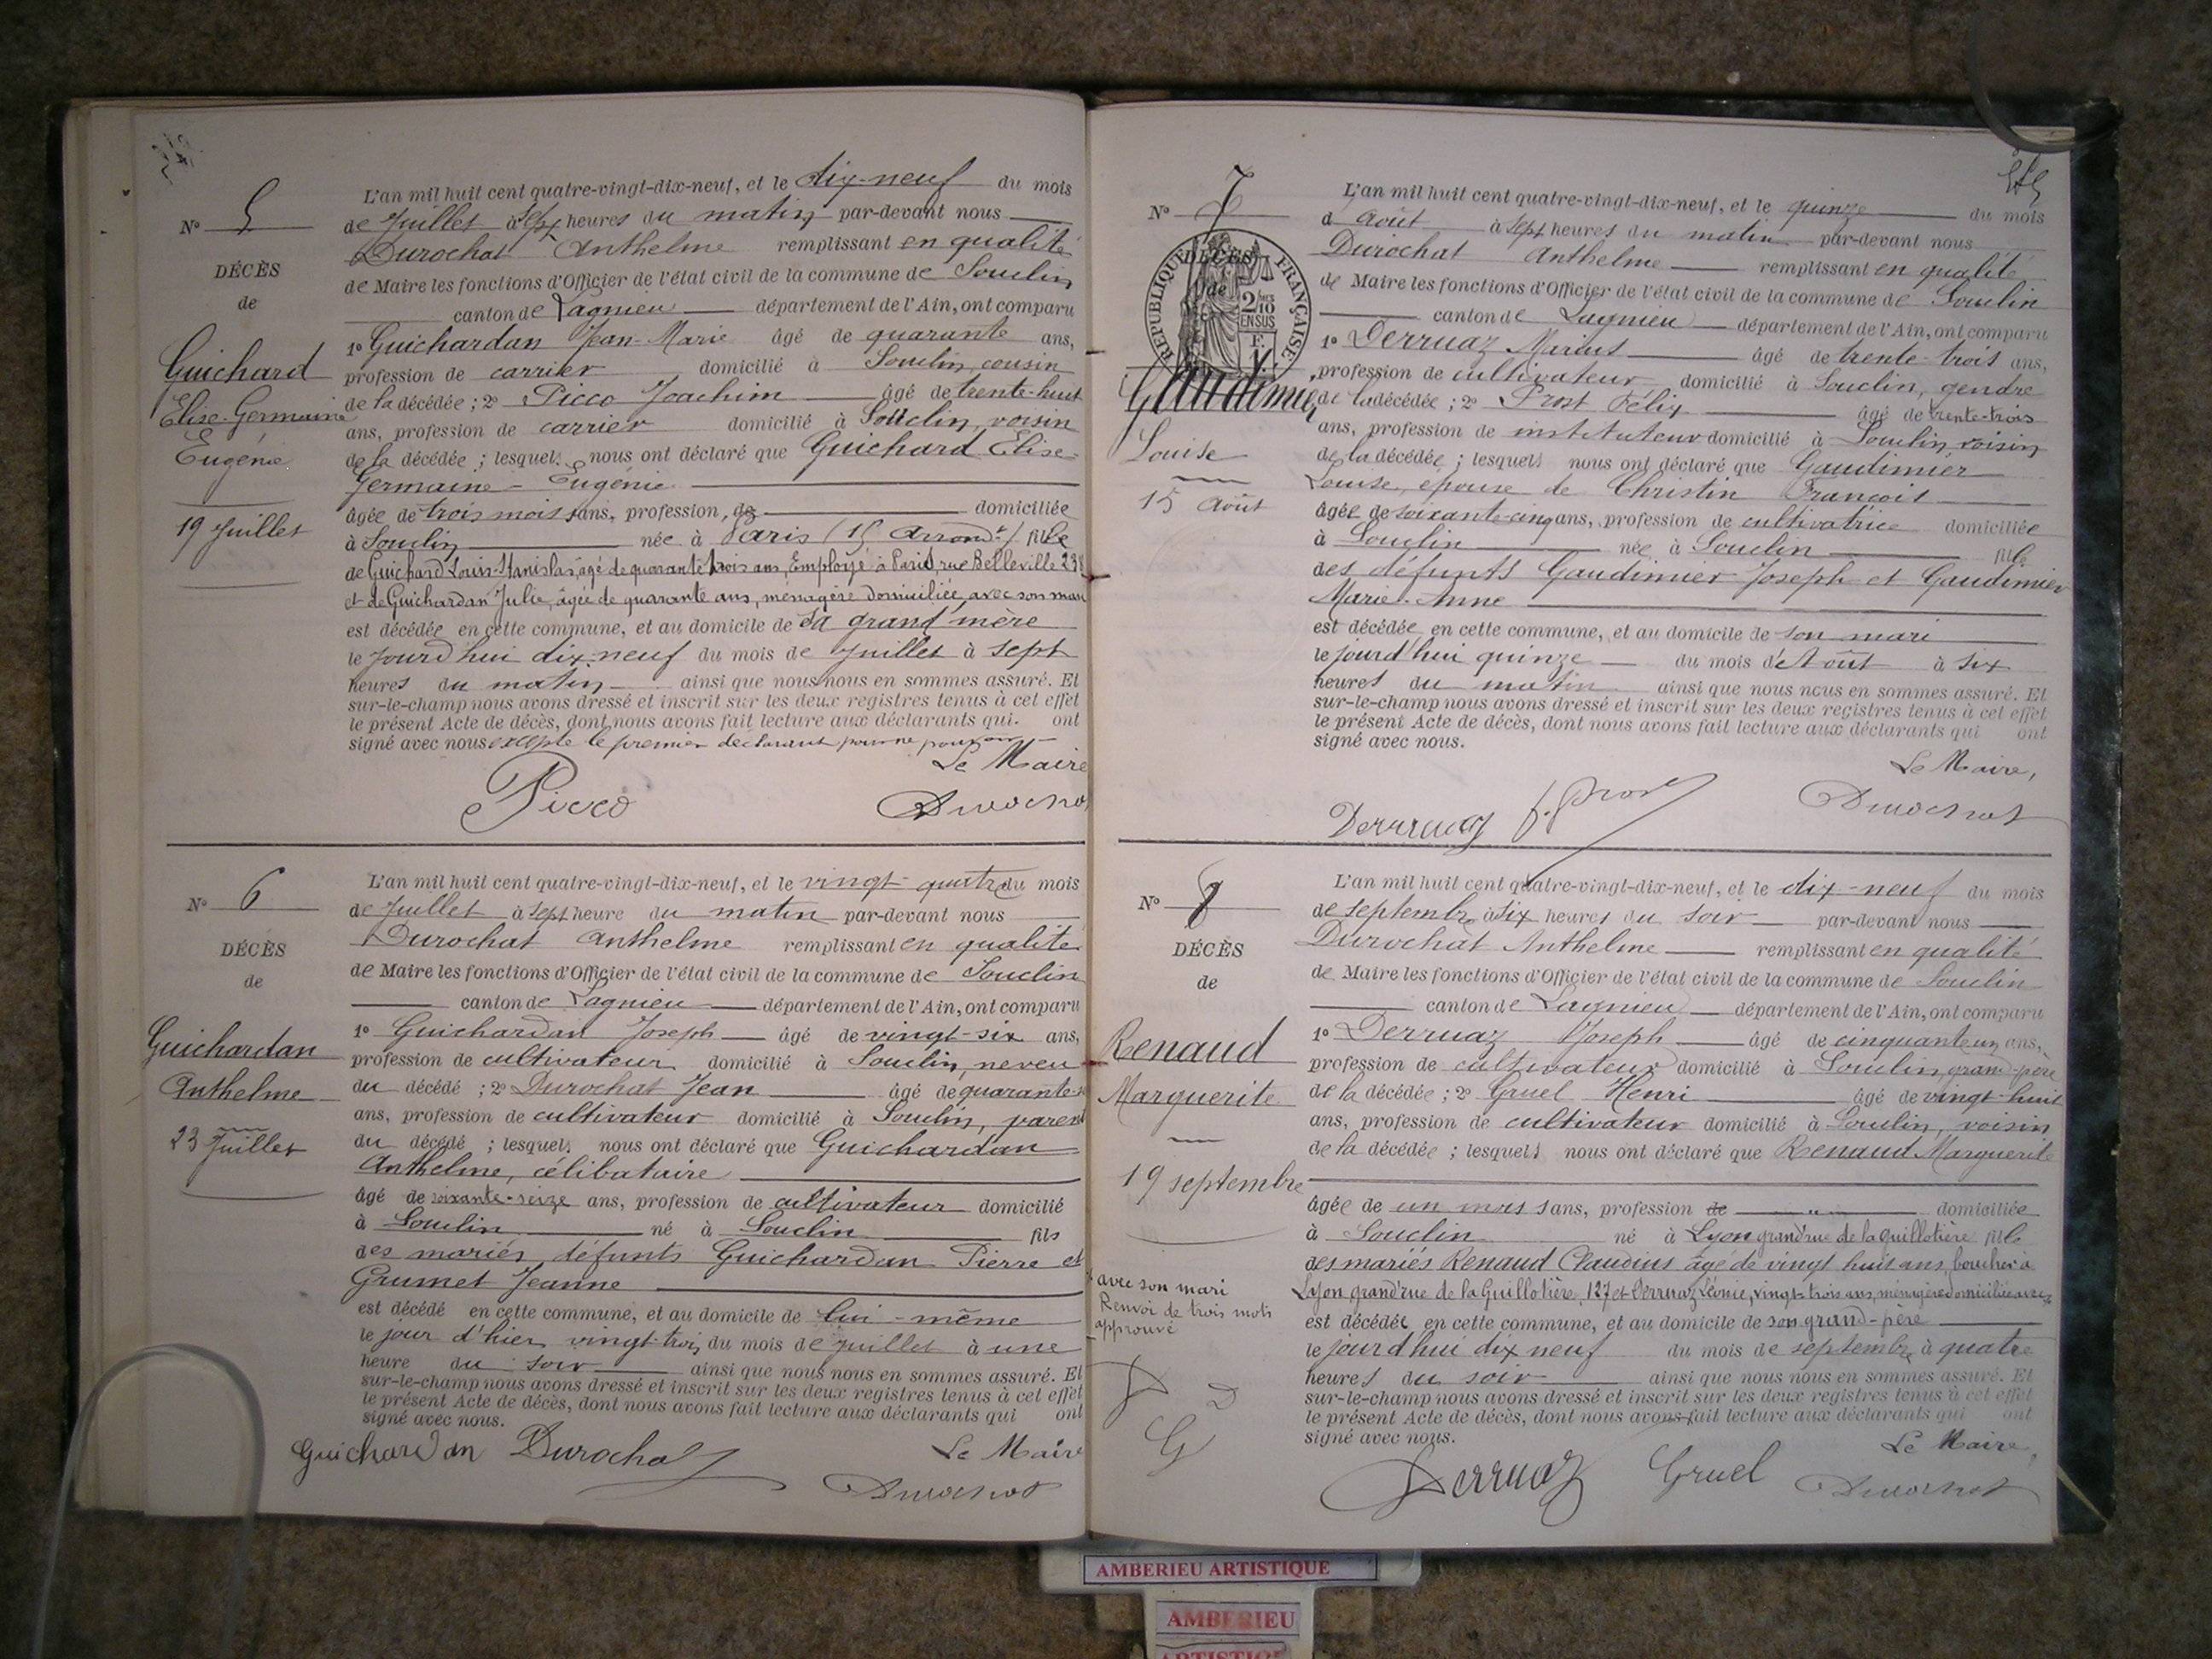 N° 5
DÉCÈS
de
Guichard
Elise-Germaine
Eugénie
19 Juillet
L'an mil huit cent quatre-vingt-dix-neuf, et le dix-neuf du mois
de Juillet à sept heures du matin par-devant nous
Durochat Anthelme remplissant en qualité
de Maire les fonctions d'Officier de l'état civil de la commune de Souclin
canton de Lagnieu département de l'Ain, ont comparu
1° Guichardan Jean-Marie âgé de quarante ans,
profession de carrier domicilié à Souclin, cousin
de la décédée ; 2° Picco Joachim âgé de trente-huit
ans, profession de carrier domicilié à Souclin, voisin
de la décédée ; lesquels nous ont déclaré que Guichard Elise-
Germaine-Eugénie
âgée de trois mois sans, profession, de domiciliée
à Souclin née à Paris (15 Arrondt) fille
de Guichard Louis-Stanislas, âgé de quarante trois ans, Employé à Paris, rue Belleville 238
et de Guichardan Julie, âgée de quarante ans, ménagère domiciliée avec son mari
est décédée en cette commune, et au domicile de sa grand'mère
le jourd'hui dix-neuf du mois de Juillet à sept
heures du matin ainsi que nous nous en sommes assuré. Et
sur-le-champ nous avons dressé et inscrit sur les deux registres tenus à cet effet
le présent Acte de décès, dont nous avons fait lecture aux déclarants qui. ont
signé avec nous excepté le premier déclarant pour ne pouvoir
Le Maire
Picco Durochat
N° 6
DÉCÈS
de
Guichardan
Anthelme
23 Juillet
L'an mil huit cent quatre-vingt-dix-neuf, et le vingt-quatre du mois
de Juillet à sept heure du matin par-devant nous
Durochat Anthelme remplissant en qualité
de Maire les fonctions d'Officier de l'état civil de la commune de Souclin
canton de Lagnieu département de l'Ain, ont comparu
1° Guichardan Joseph âgé de vingt-six ans,
profession de cultivateur domicilié à Souclin, neveu
du décédé ; 2° Durochat Jean âgé de quarante
ans, profession de cultivateur domicilié à Souclin, parent
du décédé ; lesquels nous ont déclaré que Guichardan
Anthelme, célibataire
âgé de soixante-seize ans, profession de cultivateur domicilié
à Souclin né à Souclin fils
des mariés défunts Guichardan Pierre et
Grumet Jeanne
est décédé en cette commune, et au domicile de lui-même
le jour d'hier vingt-trois du mois de juillet à une
heure du soir ainsi que nous nous en sommes assuré. Et
sur-le-champ nous avons dressé et inscrit sur les deux registres tenus à cet effet
le présent Acte de décès, dont nous avons fait lecture aux déclarants qui ont
signé avec nous.
Le Maire
Guichardan Durochat Durochat
N° 7
DÉCÈS
de
RÉPUBLIQUE FRANÇAISE
2/10
EN SUS
Gaudimier
Louise
15 Août
L'an mil huit cent quatre-vingt-dix-neuf, et le quinze du mois
d'Août à sept heures du matin par-devant nous
Durochat Anthelme remplissant en qualité
de Maire les fonctions d'Officier de l'état civil de la commune de Souclin
canton de Lagnieu département de l'Ain, ont comparu
1° Derruaz Marius âgé de trente-trois ans,
profession de cultivateur domicilié à Souclin, gendre
de la décédée ; 2° Prost Félix âgé de trente-trois
ans, profession de instituteur domicilié à Souclin, voisin
de la décédée ; lesquels nous ont déclaré que Gaudimier
Louise, épouse de Christin François
âgée de soixante-cinq ans, profession de cultivatrice domiciliée
à Souclin née à Souclin fille
des défunts Gaudimier Joseph et Gaudimier
Marie-Anne
est décédée en cette commune, et au domicile de son mari
le jourd'hui quinze du mois d'Août à six
heures du matin ainsi que nous nous en sommes assuré. Et
sur-le-champ nous avons dressé et inscrit sur les deux registres tenus à cet effet
le présent Acte de décès, dont nous avons fait lecture aux déclarants qui ont
signé avec nous.
Le Maire,
Derruaz f. Prost Durochat
N° 8
DÉCÈS
de
Renaud
Marguerite
19 septembre
L'an mil huit cent quatre-vingt-dix-neuf, et le dix-neuf du mois
de septembre à six heures du soir par-devant nous
Durochat Anthelme remplissant en qualité
de Maire les fonctions d'Officier de l'état civil de la commune de Souclin
canton de Lagnieu département de l'Ain, ont comparu
1° Derruaz Joseph âgé de cinquante un ans,
profession de cultivateur domicilié à Souclin, grand-père
de la décédée ; 2° Gruel Henri âgé de vingt-huit
ans, profession de cultivateur domicilié à Souclin, voisin
de la décédée ; lesquels nous ont déclaré que Renaud Marguerite
âgée de un mois sans, profession de domiciliée
à Souclin né à Lyon grand'rue de la guillotière fille
des mariés Renaud Claudius âgé de vingt huit ans, boucher à
Lyon grand'rue de la Guillotière, 127 et Derruaz Léonie, vingt-trois ans, ménagère domiciliée
avec son mari
Renvoi de trois mots
approuvé
D D
G
est décédée en cette commune, et au domicile de son grand-père
le jourd'hui dix neuf du mois de septembre à quatre
heures du soir ainsi que nous nous en sommes assuré. Et
sur-le-champ nous avons dressé et inscrit sur les deux registres tenus à cet effet
le présent Acte de décès, dont nous avons fait lecture aux déclarants qui ont
signé avec nous.
Le Maire,
Derruaz Gruel Durochat
AMBERIEU ARTISTIQUE
AMBERIEU
ARTISTIQUE